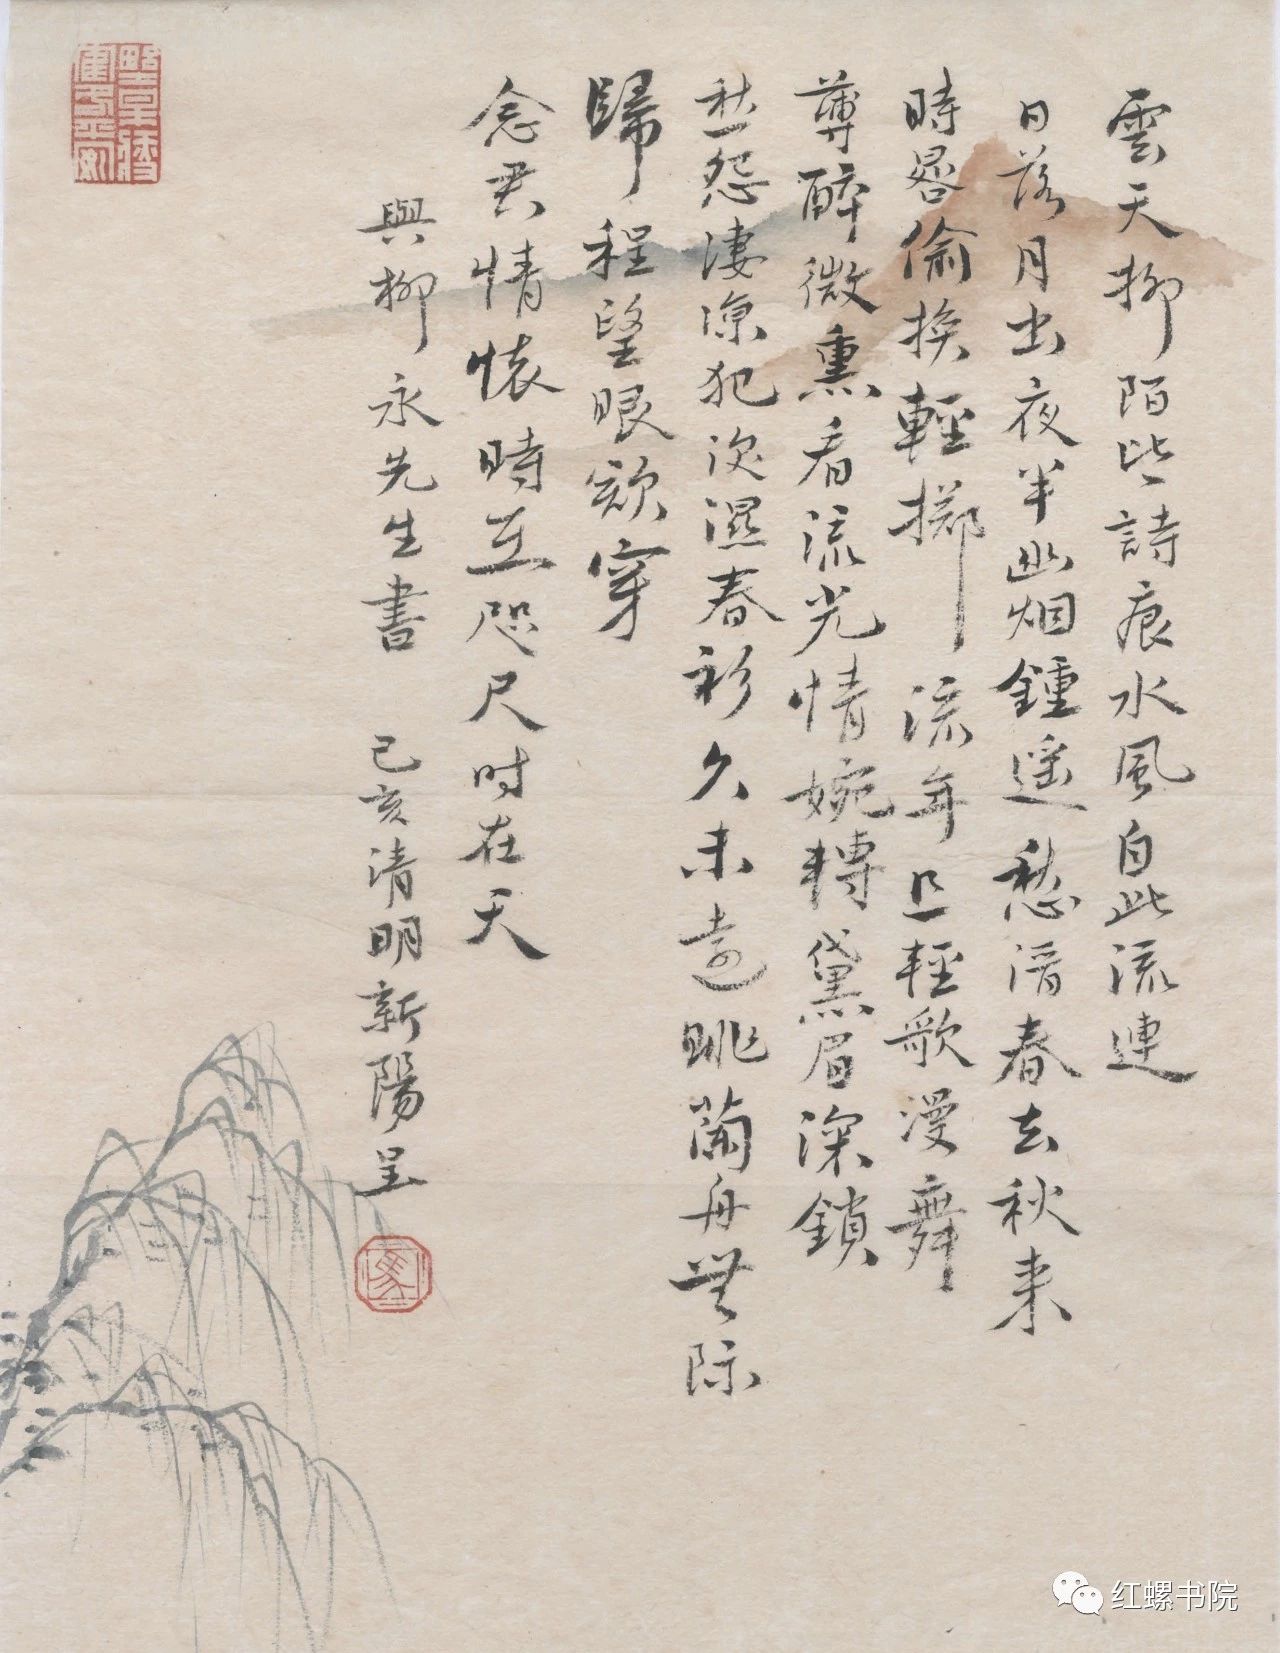 雲天柳陌些詩痕水風自此流連
日落月出夜半幽烟鍾遥愁春去秋来
時晷偷换輕擲流年且輕歌漫舞
尊醉微熏看流光情婉轉黛眉深鎖
愁怨凄凉犯次濕春衫久未遠眺蘭舟無际
歸程望眼欲穿
念君情懷時互咫尺时在天
與柳永先生書 己亥清明新陽呈
红螺书院